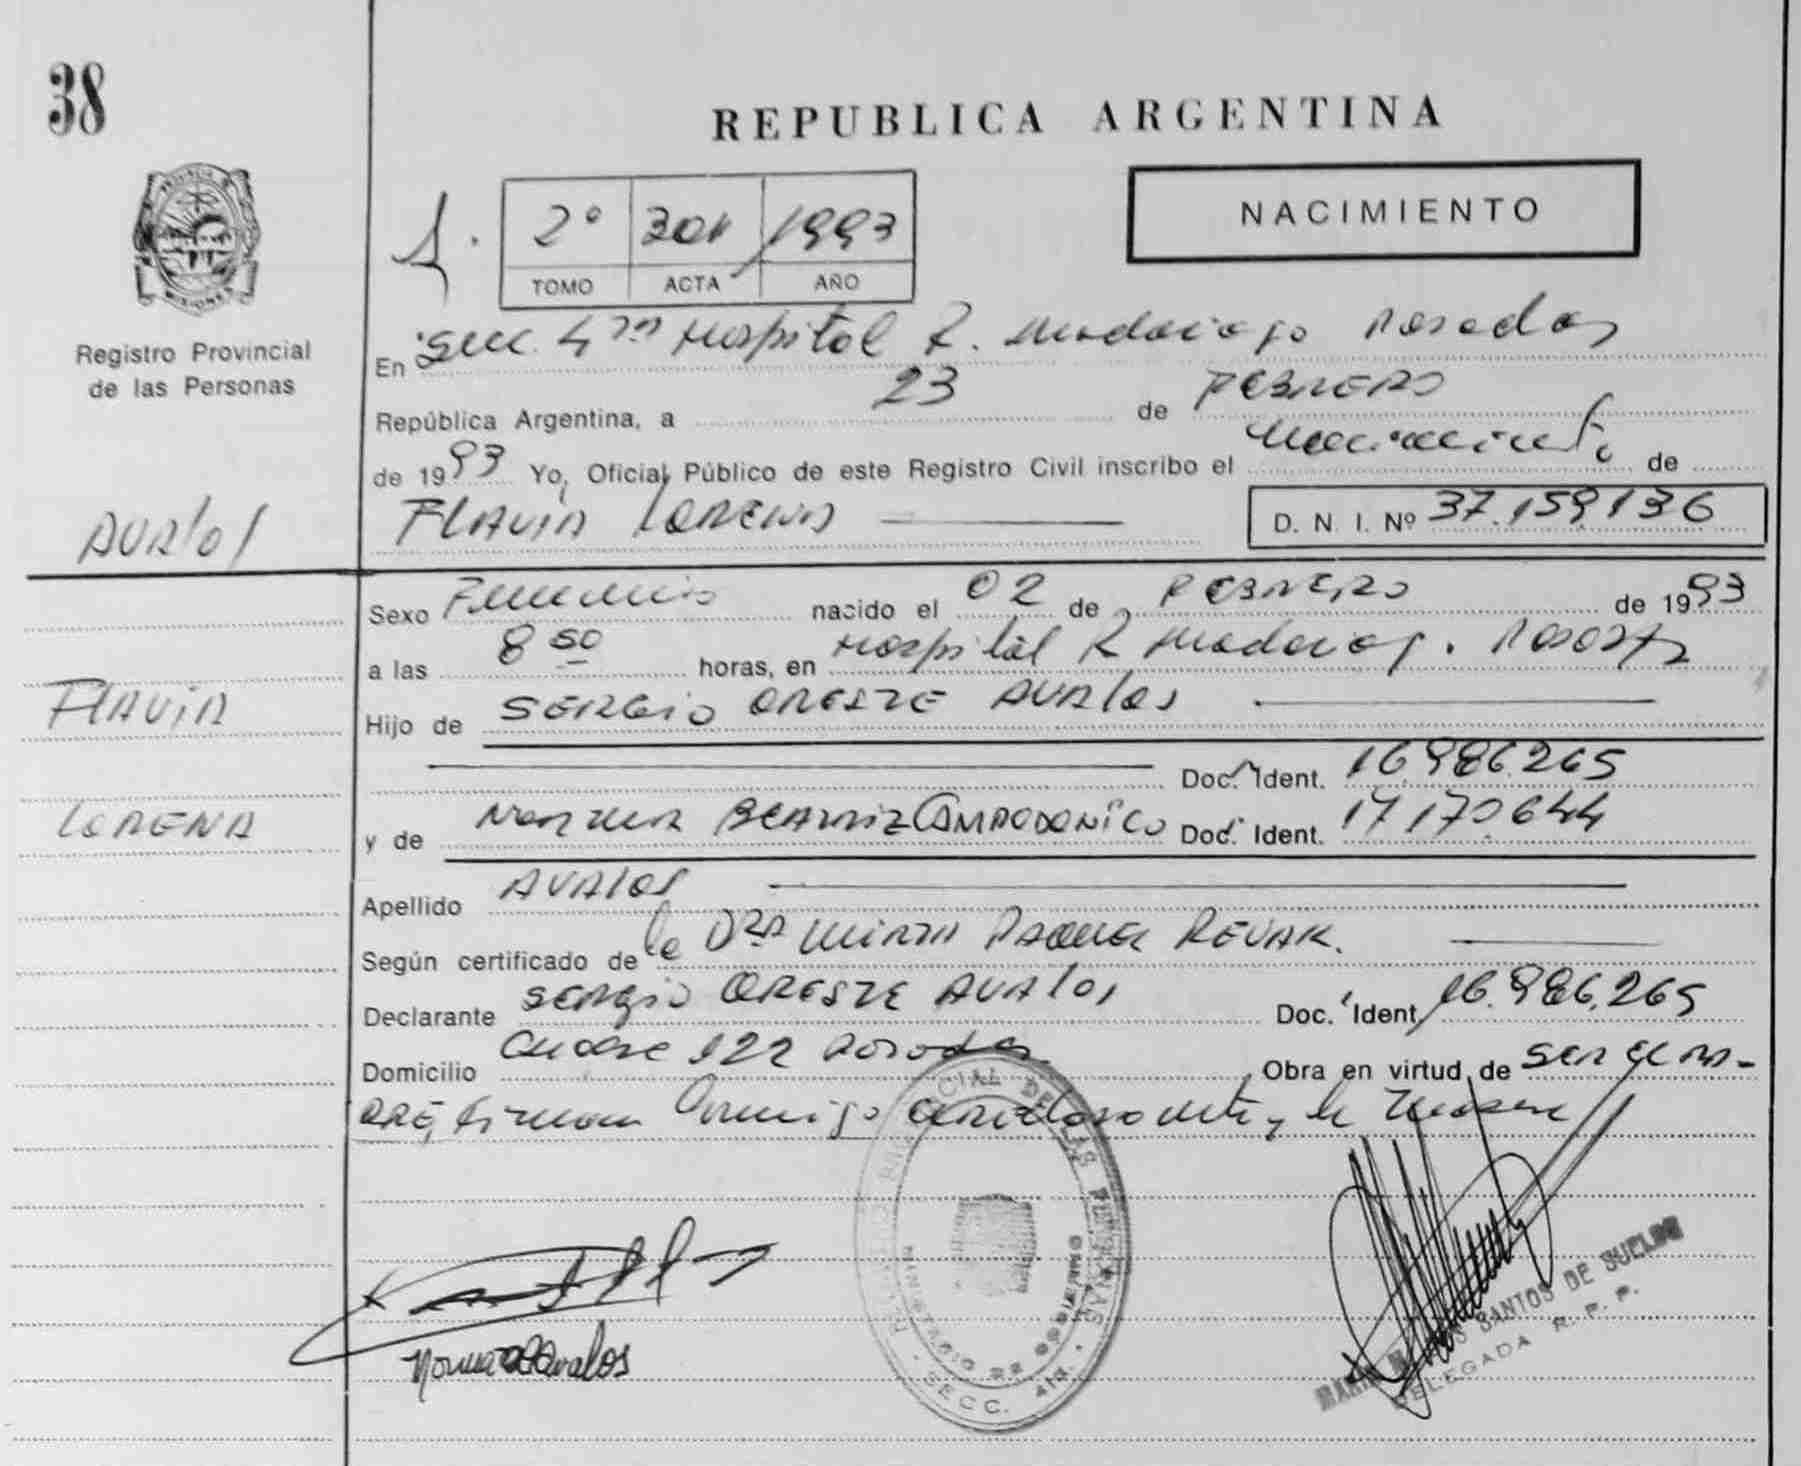 38
REPUBLICA ARGENTINA
PROVINCIA
MISIONES
2º 301 1993
TOMO ACTA AÑO
NACIMIENTO
Registro Provincial
de las Personas
En Secc. 4ta Hospital R. Madariaga Posadas
República Argentina, a 23 de FEBRERO
de 1993 Yo, Oficial Público de este Registro Civil inscribo el nacimiento de
AVALOS
FLAVIA LORENA
D. N. I. Nº 37.159136
Sexo Femenino nacido el 02 de FEBRERO de 1993
a las 8 50 horas, en Hospital R Madariag. Posadas
FLAVIA
Hijo de SERGIO ORESTE AVALOS
Doc. Ident. 16.986.265
LORENA
y de Norma BEATRIZ CAMPODONICO Doc. Ident. 17 170644
Apellido AVALOS
Según certificado de la DRA MIRTA RAQUEL REVAK.
Declarante SERGIO ORESTE AVALOS Doc. Ident. 16.986.265
Domicilio 122 Posadas Obra en virtud de SER EL PA-
DRE, firman conmigo el declarante y la madre
REGISTRO PROVINCIAL DE LAS PERSONAS
MINISTERIO DE GOBIERNO
SECC. 4ta.
Norma Avalos
SANTOS DE SUELDO
DELEGADA R. P. P.